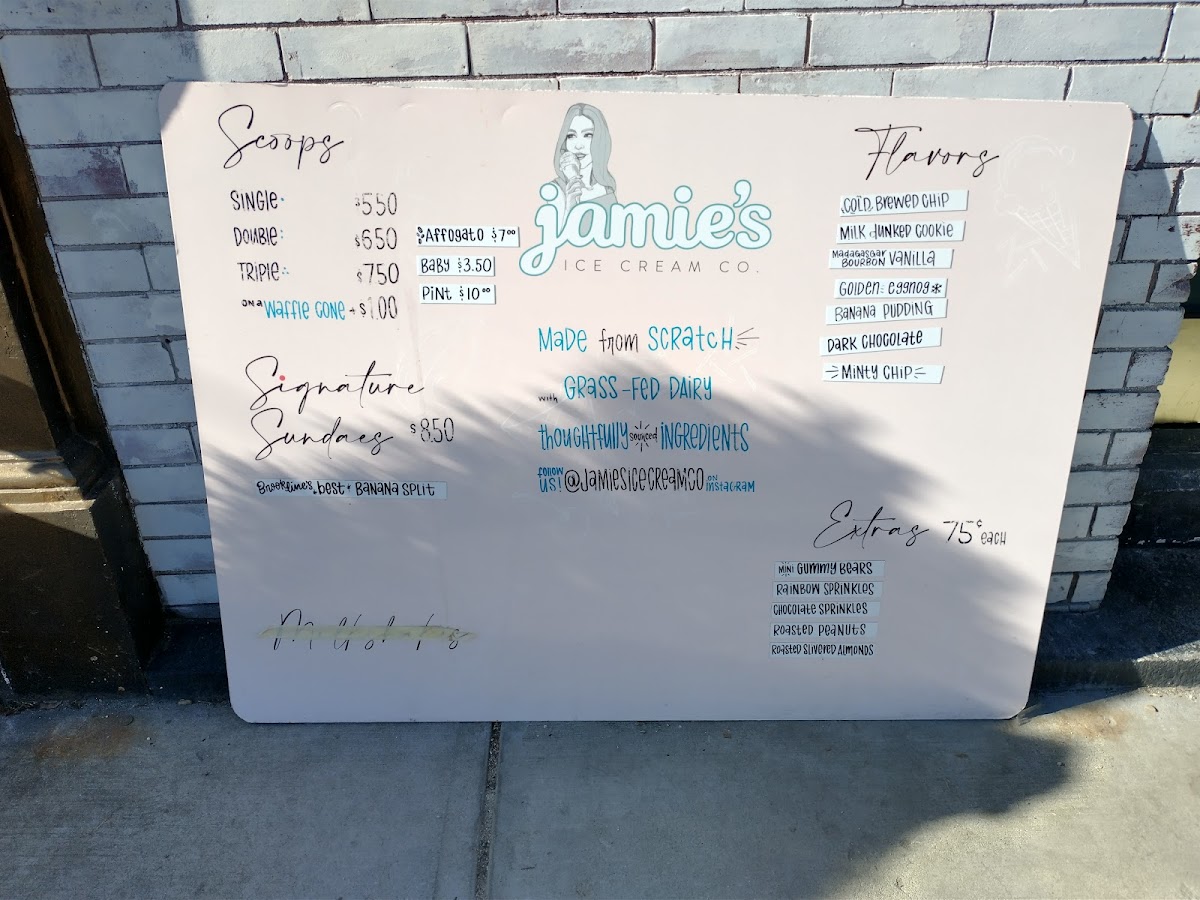 Scoops
SINGLE $5.50
DOUBLE: $6.50
TRIPLE: $7.50
ON A WAFFLE CONE + $1.00
AFFOGATO $7.00
BABY $3.50
PINT $10.00
Signature
Sundaes $8.50
Brookline's best BANANA SPLIT
jamie's
ICE CREAM CO.
MADE from SCRATCH
with GRASS-FED DAIRY
thoughtfully sourced INGREDIENTS
FOLLOW US! @JAMIESICECREAMCO ON INSTAGRAM
Flavors
COLD BREWED CHIP
MILK DUNKED COOKIE
MADAGASCAR BOURBON VANILLA
GOLDEN EGGNOG*
BANANA PUDDING
DARK CHOCOLATE
MINTY CHIP
Extras 75¢ EACH
MINI GUMMY BEARS
RAINBOW SPRINKLES
CHOCOLATE SPRINKLES
ROASTED PEANUTS
ROASTED SLIVERED ALMONDS